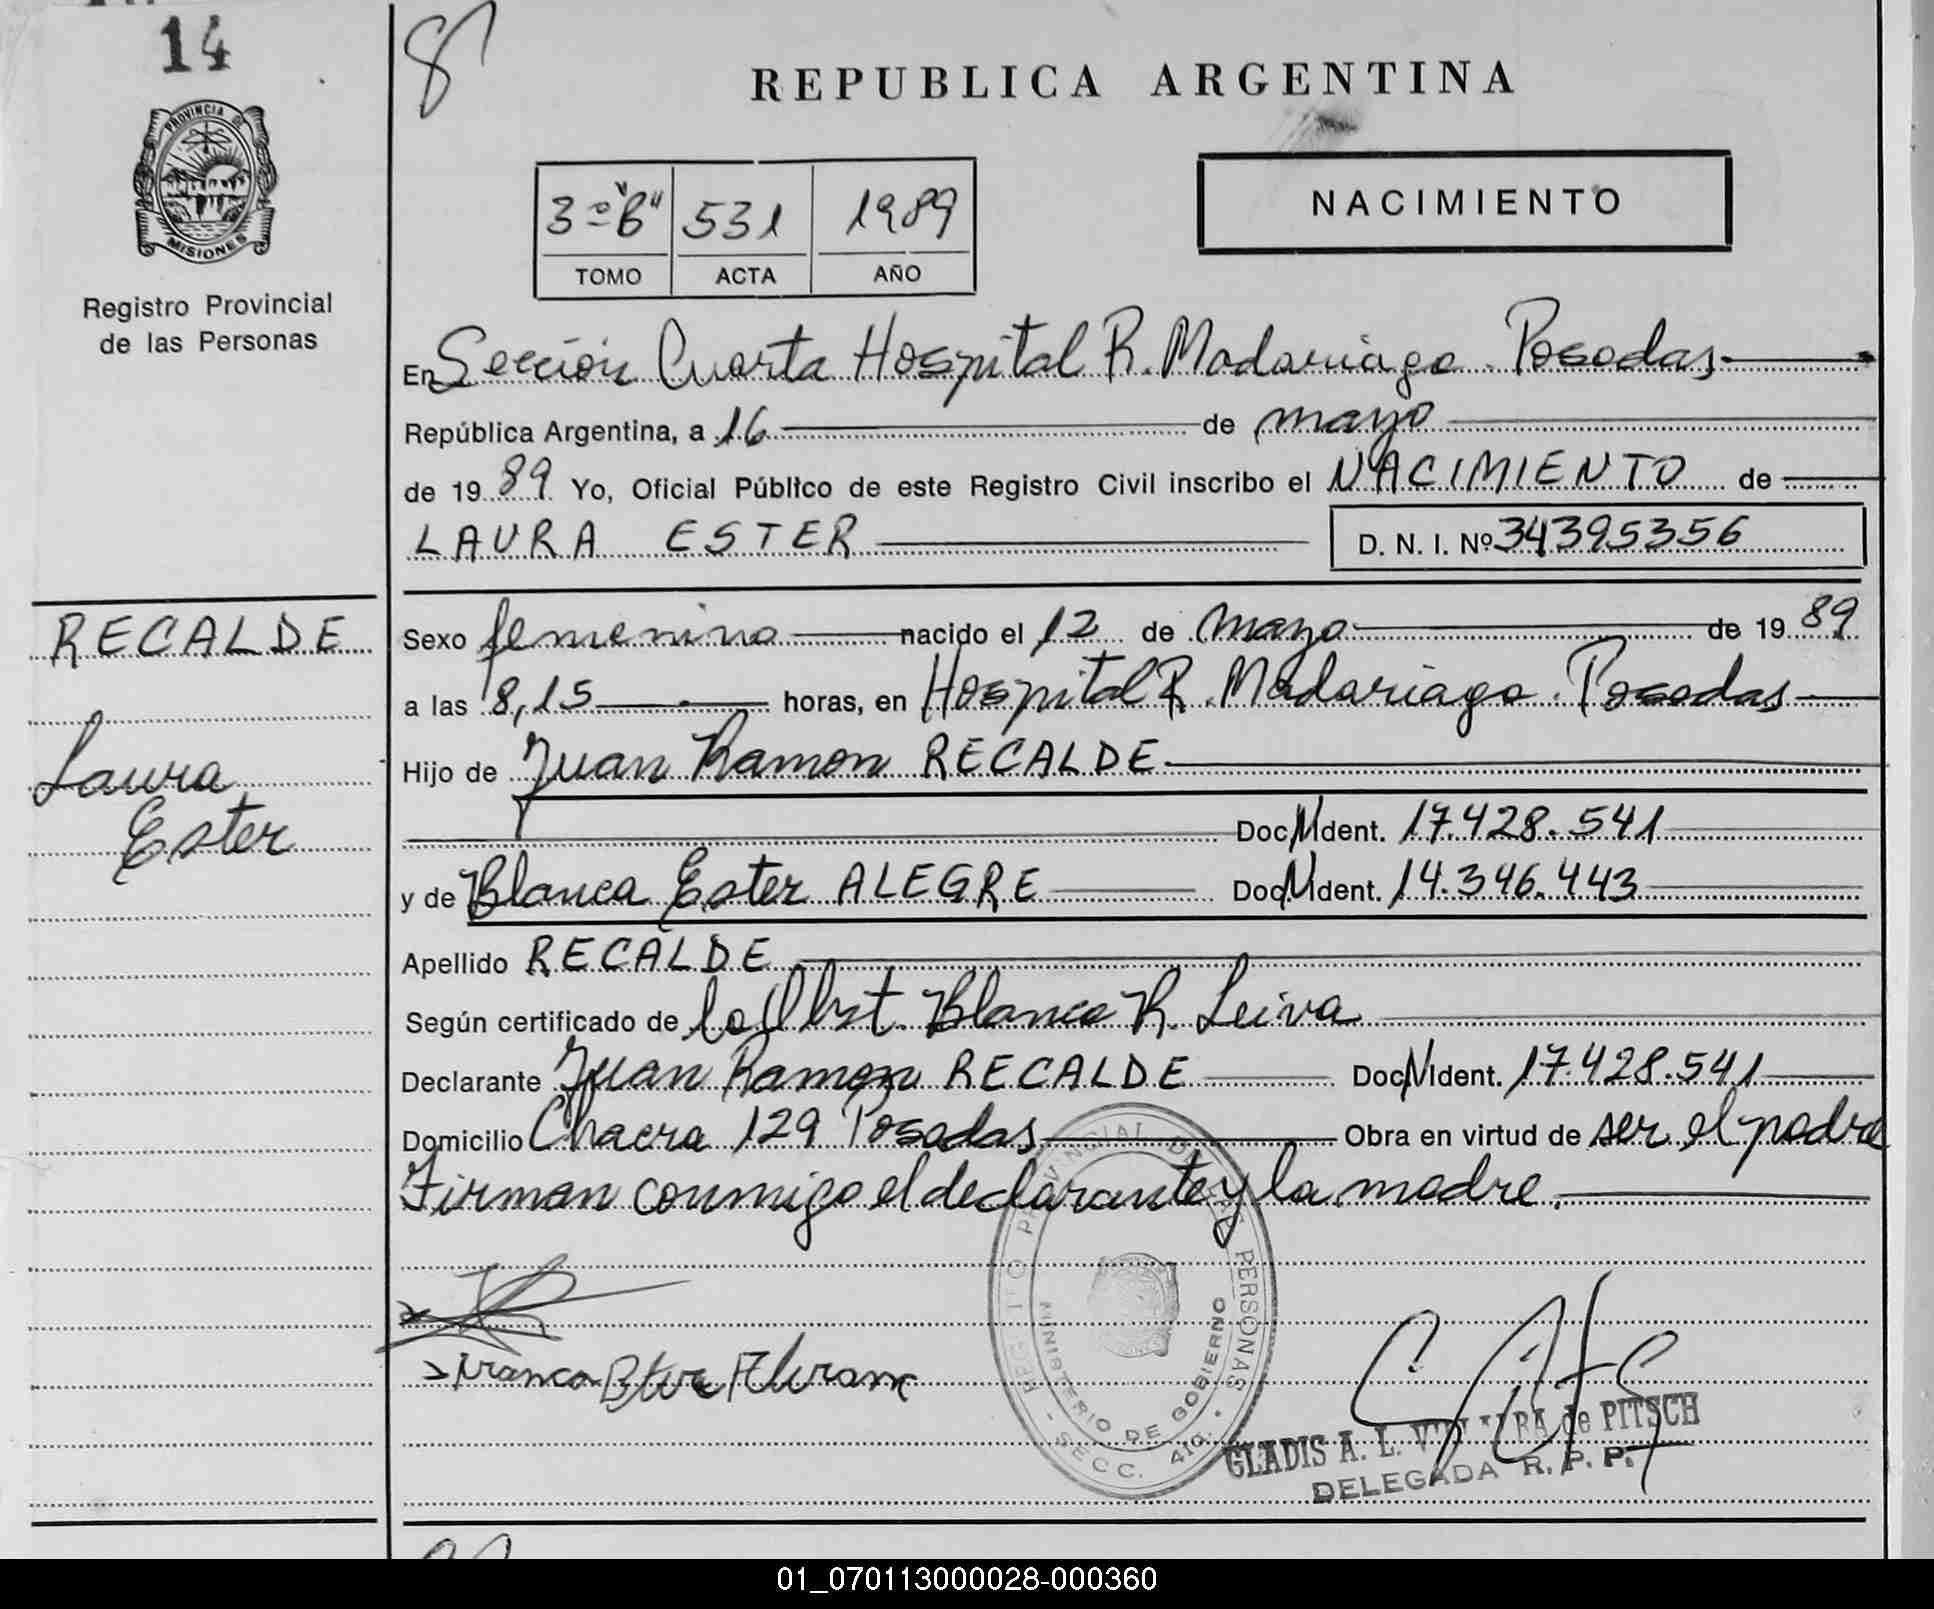 14
PROVINCIA DE
MISIONES
Registro Provincial
de las Personas
REPUBLICA ARGENTINA
3º "B" 531 1989
TOMO ACTA AÑO
NACIMIENTO
En Sección Cuarta Hospital R. Madariaga. Posadas
República Argentina, a 16 de mayo
de 1989 Yo, Oficial Público de este Registro Civil inscribo el NACIMIENTO de
LAURA ESTER D. N. I. Nº 34395356
RECALDE
Laura
Ester
Sexo femenino nacido el 12 de Mayo de 1989
a las 8,15 horas, en Hospital R. Madariaga. Posadas
Hijo de Juan Ramon RECALDE
Doc. N Ident. 17.428.541
y de Blanca Ester ALEGRE Doc. N Ident. 14.346.443
Apellido RECALDE
Según certificado de la Obst. Blanca R. Leiva
Declarante Juan Ramon RECALDE Doc. N Ident. 17.428.541
Domicilio Chacra 129 Posadas Obra en virtud de ser el padre
Firman conmigo el declarante y la madre.
REGISTRO PROVINCIAL DE LAS PERSONAS
MINISTERIO DE GOBIERNO
- SECC. 4ta. -
GLADIS A. L. de PITSCH
DELEGADA R. P. P.
01_070113000028-000360